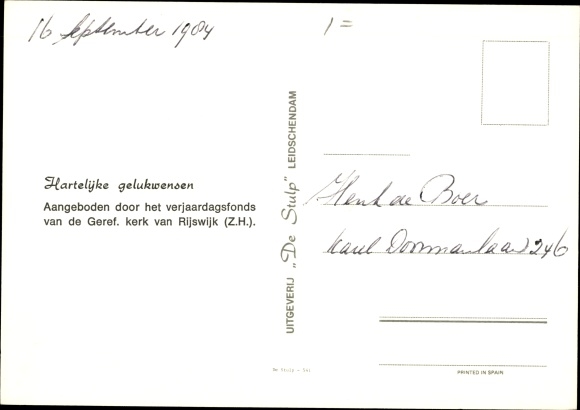 16 September 1984
1 =
Hartelijke gelukwensen
Aangeboden door het verjaardagsfonds
van de Geref. kerk van Rijswijk (Z.H.).
UITGEVERIJ „De Stulp” LEIDSCHENDAM
Henk de Boer
Karel Doormanlaan 246
De Stulp -
PRINTED IN SPAIN